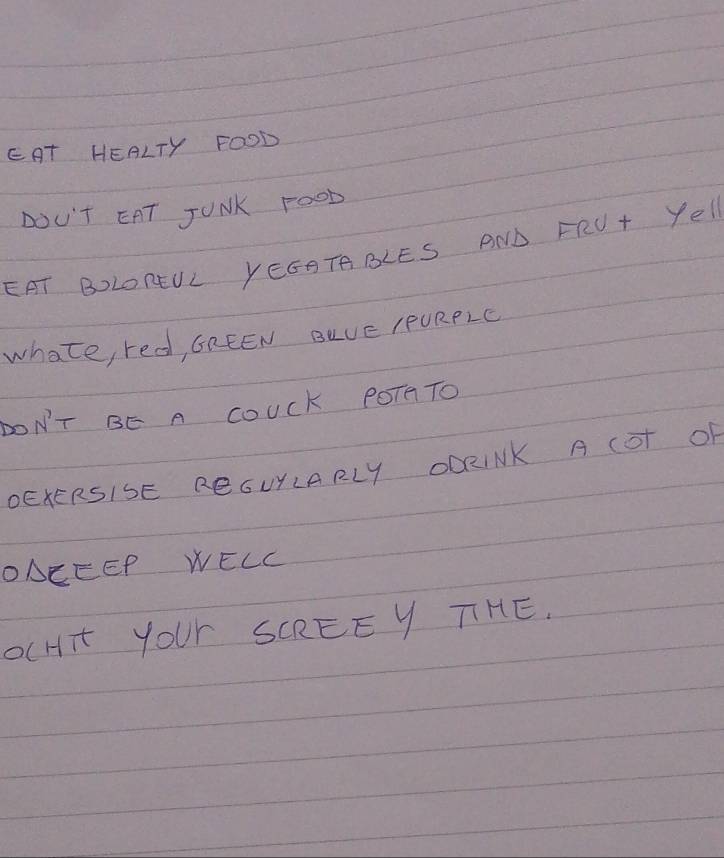 EAT HEALTY FOOD
DOU'T EAT JUNK FOOD
EAT BOLOREUL YEGATABLES AND FRU+ Yell
whate, red, GREEN BLUE /PURPLE
DON'T BE A COUCK POTATO
OEXERSISE REGUYLARLY ODRINK A COT OF
OSCEEP WELC
OCHIt YOUr SCREEY TIME.